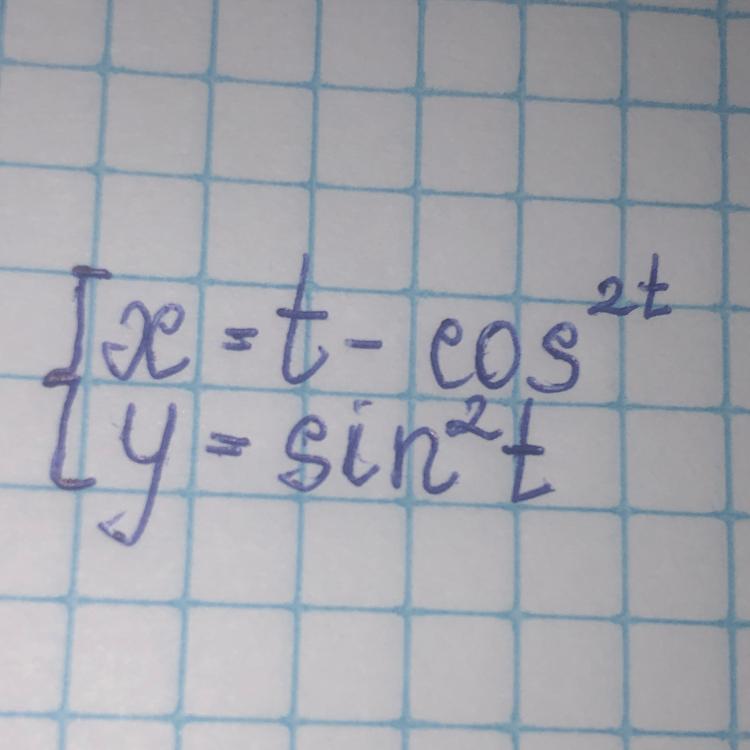 x = t - cos^{2t}
y = sin^2 t